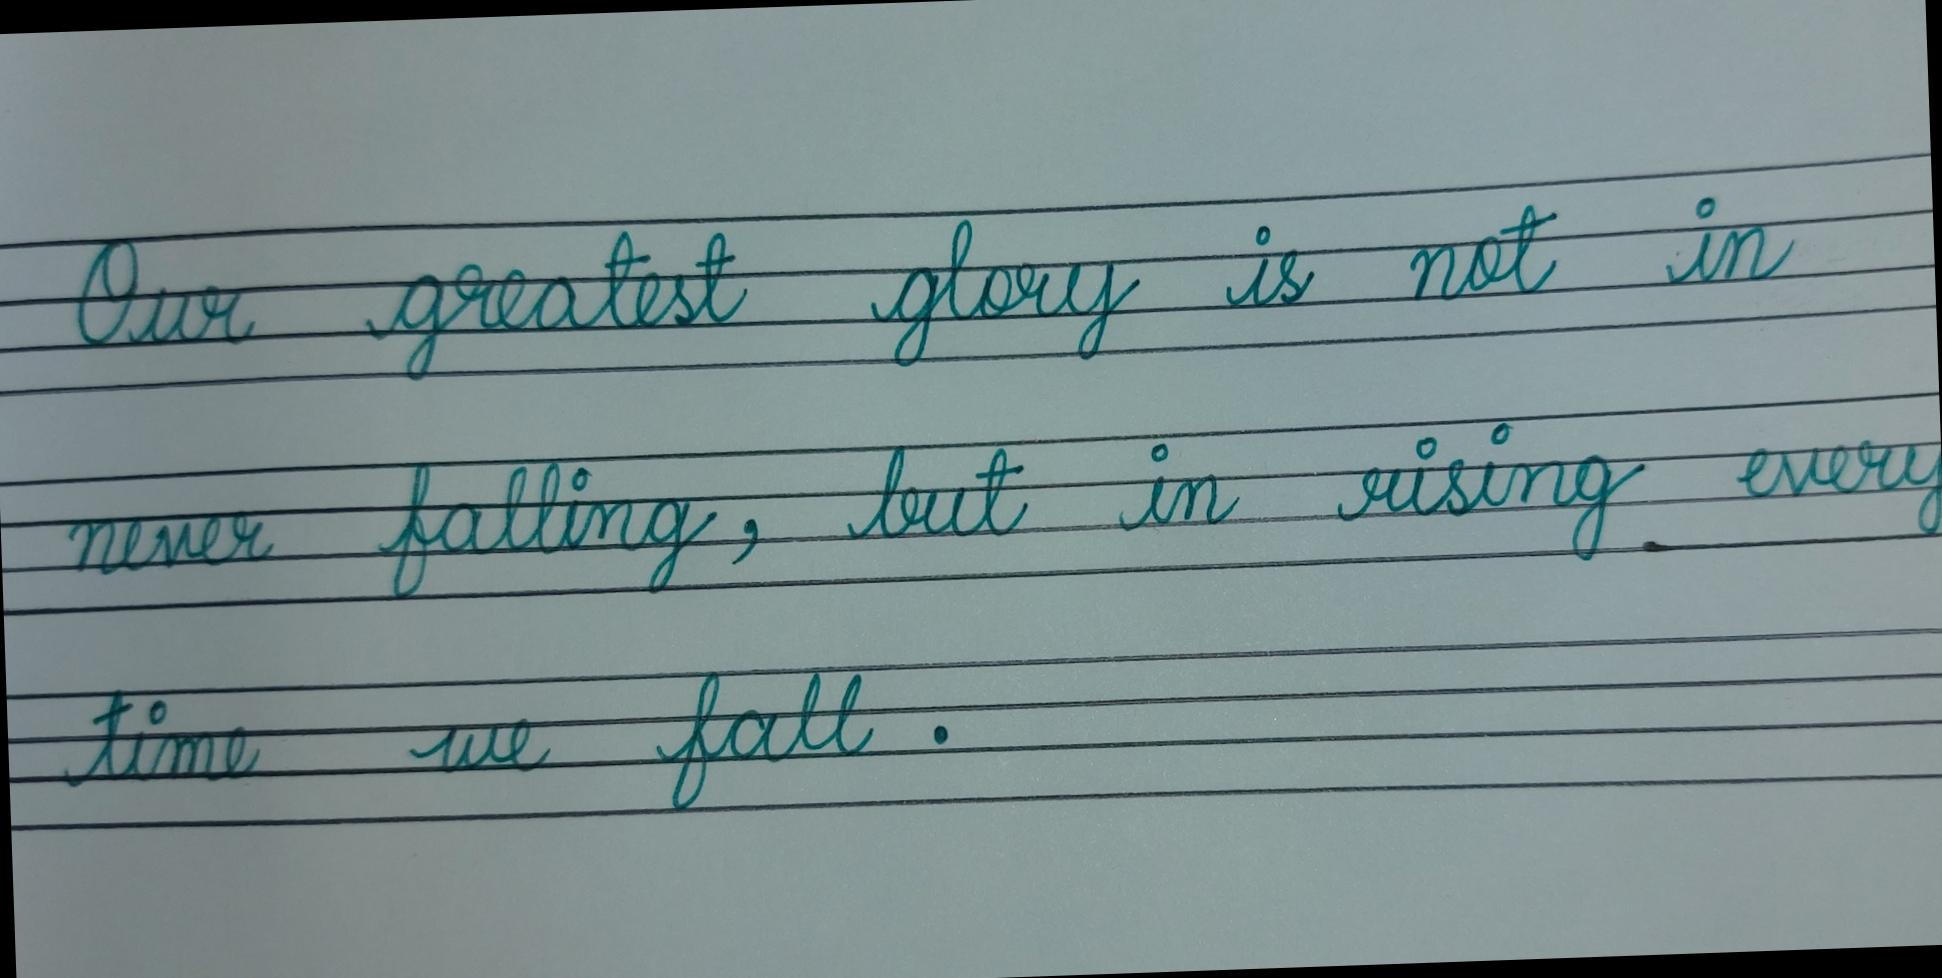 Our greatest glory is not in
never falling, but in rising every
time we fall.